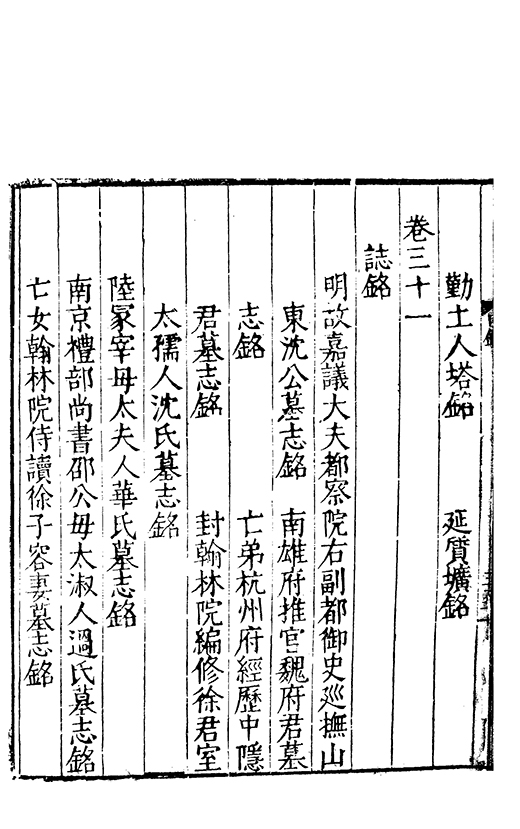 勤土人塔銘　延質壙銘
卷三十一
誌銘
明故嘉議大夫都察院右副都御史廵撫山
東沈公墓志銘　南雄府推官魏府君墓
志銘　亡弟杭州府經歷中隱
君墓志銘　封翰林院編修徐君室
太孺人沈氏墓志銘
陸冢宰母太夫人華氏墓志銘
南京禮部尚書邵公母太淑人過氏墓志銘
亡女翰林院侍讀徐子容妻墓志銘